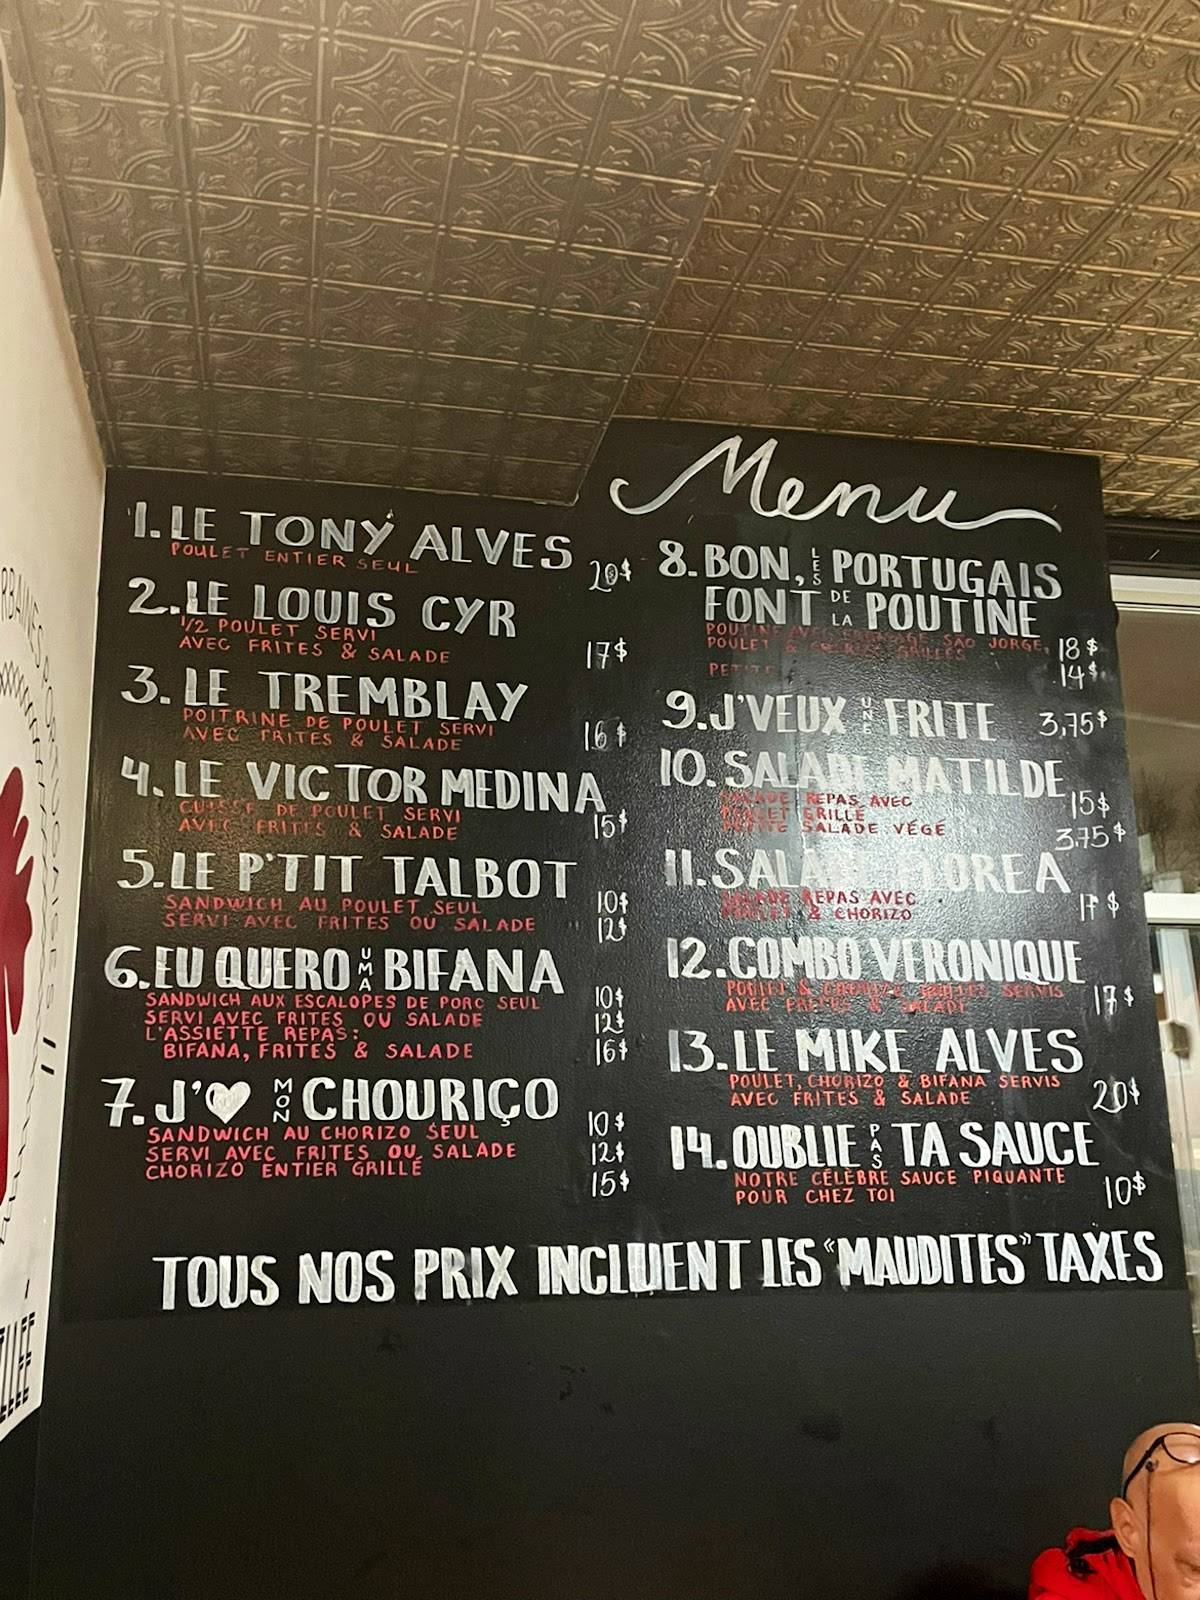 Menu
1. LE TONY ALVES
POULET ENTIER SEUL 20$
2. LE LOUIS CYR
1/2 POULET SERVI
AVEC FRITES & SALADE 17$
3. LE TREMBLAY
POITRINE DE POULET SERVI
AVEC FRITES & SALADE 16$
4. LE VICTOR MEDINA
CUISSE DE POULET SERVI
AVEC FRITES & SALADE 15$
5. LE P'TIT TALBOT
SANDWICH AU POULET SEUL 10$
SERVI AVEC FRITES OU SALADE 12$
6. EU QUERO UMA BIFANA
SANDWICH AUX ESCALOPES DE PORC SEUL 10$
SERVI AVEC FRITES OU SALADE 12$
L'ASSIETTE REPAS:
BIFANA, FRITES & SALADE 16$
7. J'♥ MON CHOURIÇO
SANDWICH AU CHORIZO SEUL 10$
SERVI AVEC FRITES OU SALADE 12$
CHORIZO ENTIER GRILLÉ 15$
8. BON, LES PORTUGAIS
FONT DE LA POUTINE
POUTINE AVEC FROMAGE SÃO JORGE,
POULET & CHORIZO GRILLÉS 18$
PETITE 14$
9. J'VEUX UNE FRITE 3,75$
10. SALADE MATILDE
SALADE REPAS AVEC
POULET GRILLÉ 15$
PETITE SALADE VÉGÉ 3.75$
11. SALADE
SALADE REPAS AVEC
POULET & CHORIZO 17$
12. COMBO VERONIQUE
POULET & CHORIZO GRILLÉS SERVIS
AVEC FRITES & SALADE 17$
13. LE MIKE ALVES
POULET, CHORIZO & BIFANA SERVIS
AVEC FRITES & SALADE 20$
14. OUBLIE PAS TA SAUCE
NOTRE CÉLÈBRE SAUCE PIQUANTE
POUR CHEZ TOI 10$
TOUS NOS PRIX INCLUENT LES "MAUDITES" TAXES